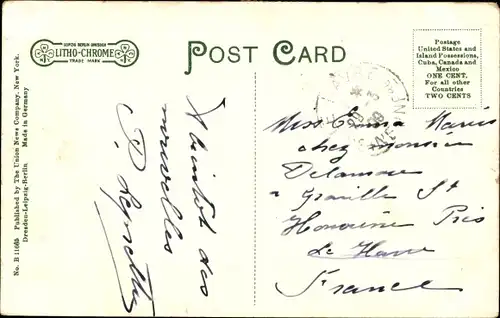 LEIPZIG BERLIN DRESDEN
LITHO-CHROME
TRADE MARK
POST CARD
Postage
United States and
Island Possessions,
Cuba, Canada and
Mexico
ONE CENT.
For all other
Countries
TWO CENTS
No. B 11665 Published by The Union News Company, New York.
Dresden-Leipzig-Berlin Made in Germany
A bientot des
nouvelles
Miss Emma
chez monsieur
Delamare
Graville St
Honorine Près
Le Havre
France